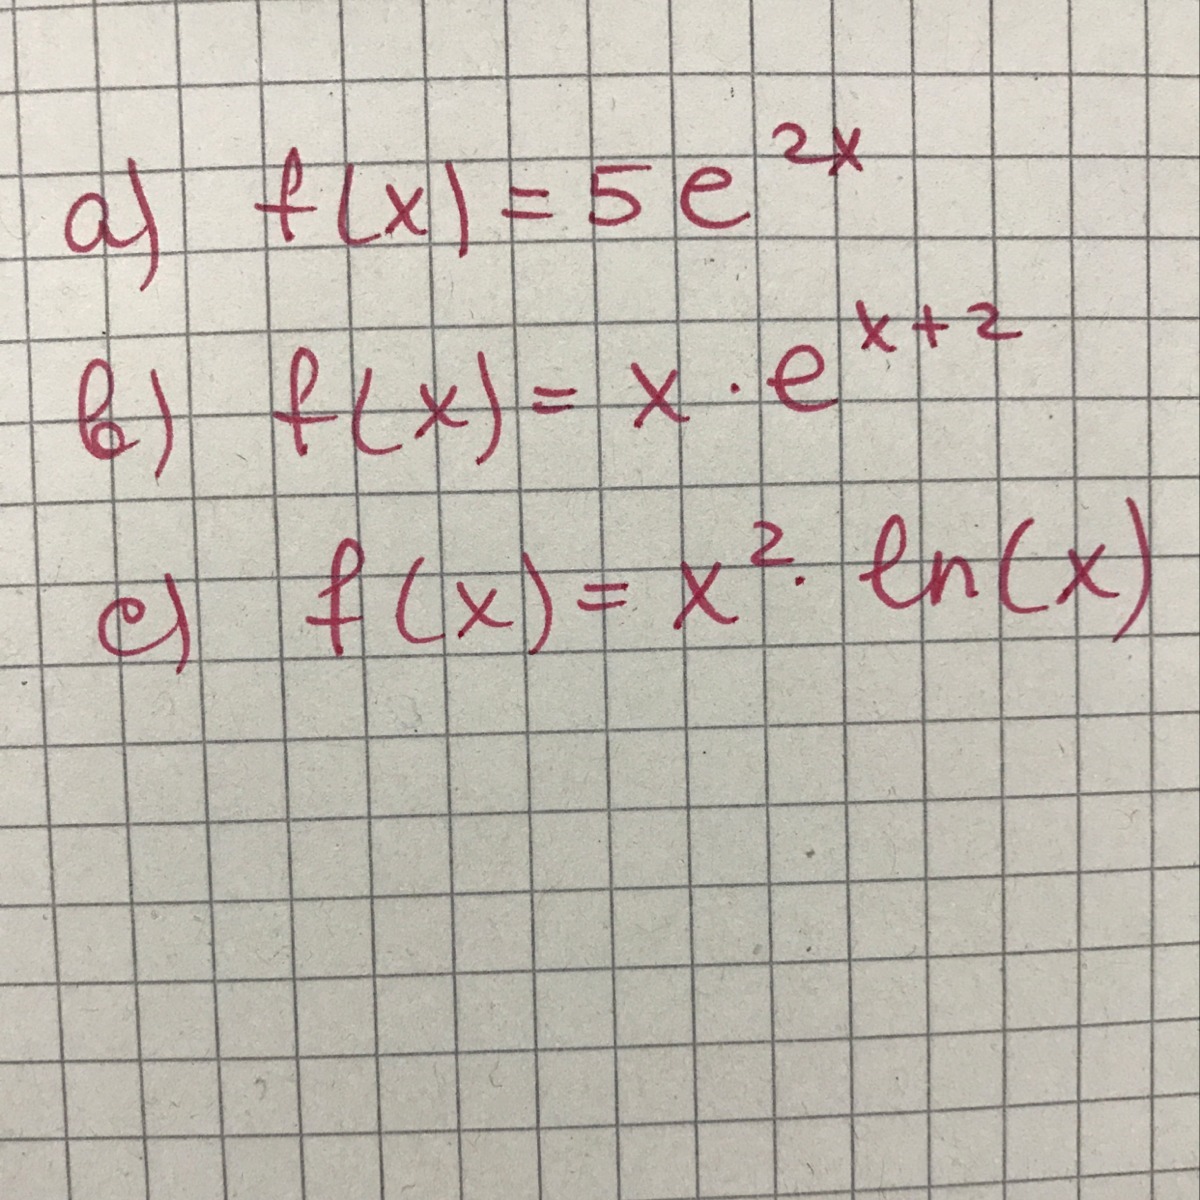 a) f(x) = 5e^{2x}
b) f(x) = x · e^{x+2}
c) f(x) = x² · ln(x)